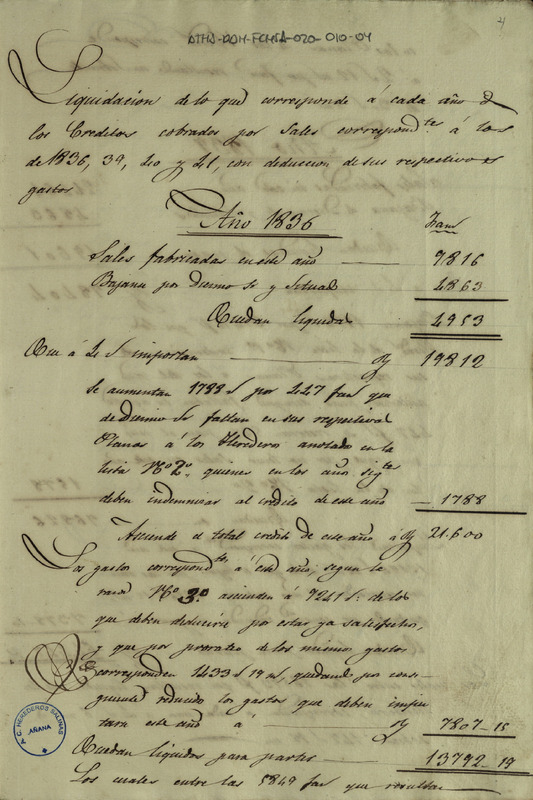 4
ATHA-DAH-FCHSA-020-010-04
Liquidacion de lo que corresponde á cada año de
los Creditos cobrados por Sales correspond.tes á los
de 1836, 39, 40 y 41, con deduccion de sus respectivos
gastos
Año 1836
Sales fabricadas en este año 9816
Bajanse por Diezmo 4863
Quedan liquidas 4953
Que á 4 r importan 19812
se aumentan 1788 r por 447 fan que
de Diezmo se faltan en sus respectivas
Planas a los Herederos anotados en la
lista Nº 2º quienes en los años sigtes
deben indemnizar al credito de este año 1788
Asciende el total credito de este año á 21.600
Los gastos correspond.tes á este año, segun le
Nº 3º ascienden á 9241 r de los
que deben deducirse por estar ya satisfechos,
y que por prorrateo de los mismos gastos
corresponden 1433 r 19 ms, quedando por conse-
guiente reducido los gastos que deben impu
tarse este año á 7807-15
Quedan líquidos para partir 13792-19
Los cuales entre las 5849 fan que resultan
C. HEREDEROS SALINAS
AÑANA